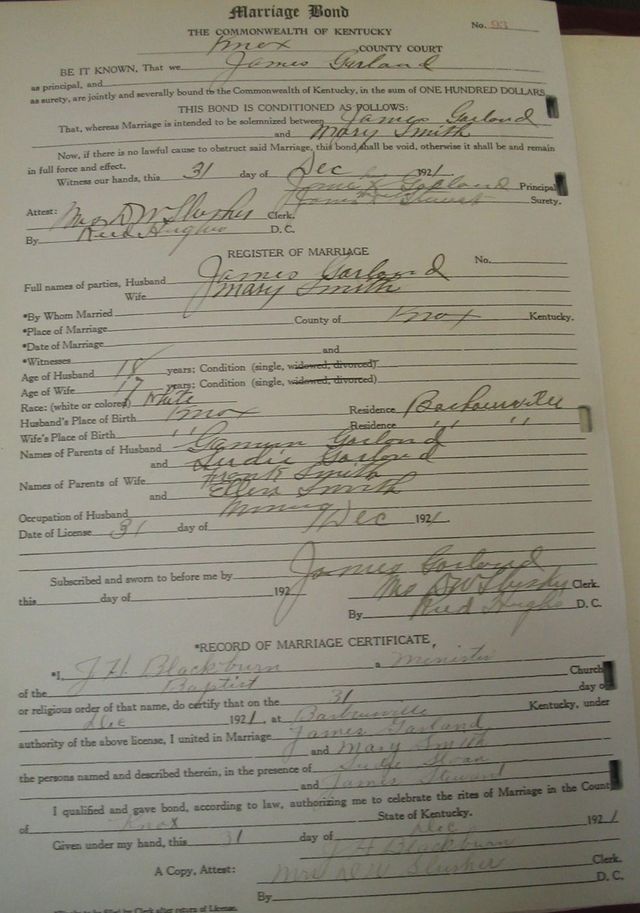 Marriage Bond
THE COMMONWEALTH OF KENTUCKY No. 93
Knox COUNTY COURT
BE IT KNOWN, That we James Garland
as principal, and
as surety, are jointly and severally bound to the Commonwealth of Kentucky, in the sum of ONE HUNDRED DOLLARS
THIS BOND IS CONDITIONED AS FOLLOWS:
That, whereas Marriage is intended to be solemnized between James Garland
and Mary Smith
Now, if there is no lawful cause to obstruct said Marriage, this bond shall be void, otherwise it shall be and remain
in full force and effect.
Witness our hands, this 31 day of Dec 1921
James Garland Principal
James Stewart Surety.
Attest: Mrs D W Slusher Clerk.
By Reed Hughes D. C.
REGISTER OF MARRIAGE
Full names of parties, Husband James Garland No.
Wife Mary Smith
*By Whom Married
*Place of Marriage County of Knox Kentucky.
*Date of Marriage
*Witnesses and
Age of Husband 18 years; Condition (single, widowed, divorced)
Age of Wife 17 years; Condition (single, widowed, divorced)
Race: (white or colored) White
Husband's Place of Birth Knox Residence Barbourville
Wife's Place of Birth " " Residence " "
Names of Parents of Husband Garland
and Garland
Names of Parents of Wife Frank Smith
and Ellen Smith
Occupation of Husband Mining
Date of License 31 day of Dec 1921
Subscribed and sworn to before me by James Garland
this day of 192 Mrs D W Slusher Clerk.
By Reed Hughes D. C.
*RECORD OF MARRIAGE CERTIFICATE,
*I, J. H. Blackburn a Minister
of the Baptist Church
or religious order of that name, do certify that on the 31 day of
Dec 1921, at Barbourville Kentucky, under
authority of the above license, I united in Marriage James Garland
and Mary Smith
the persons named and described therein, in the presence of Sloan
and James Steward
I qualified and gave bond, according to law, authorizing me to celebrate the rites of Marriage in the Count
of Knox State of Kentucky.
Given under my hand, this 31 day of Dec 1921
J H Blackburn
A Copy, Attest: Mrs D W Slusher Clerk.
By D. C.